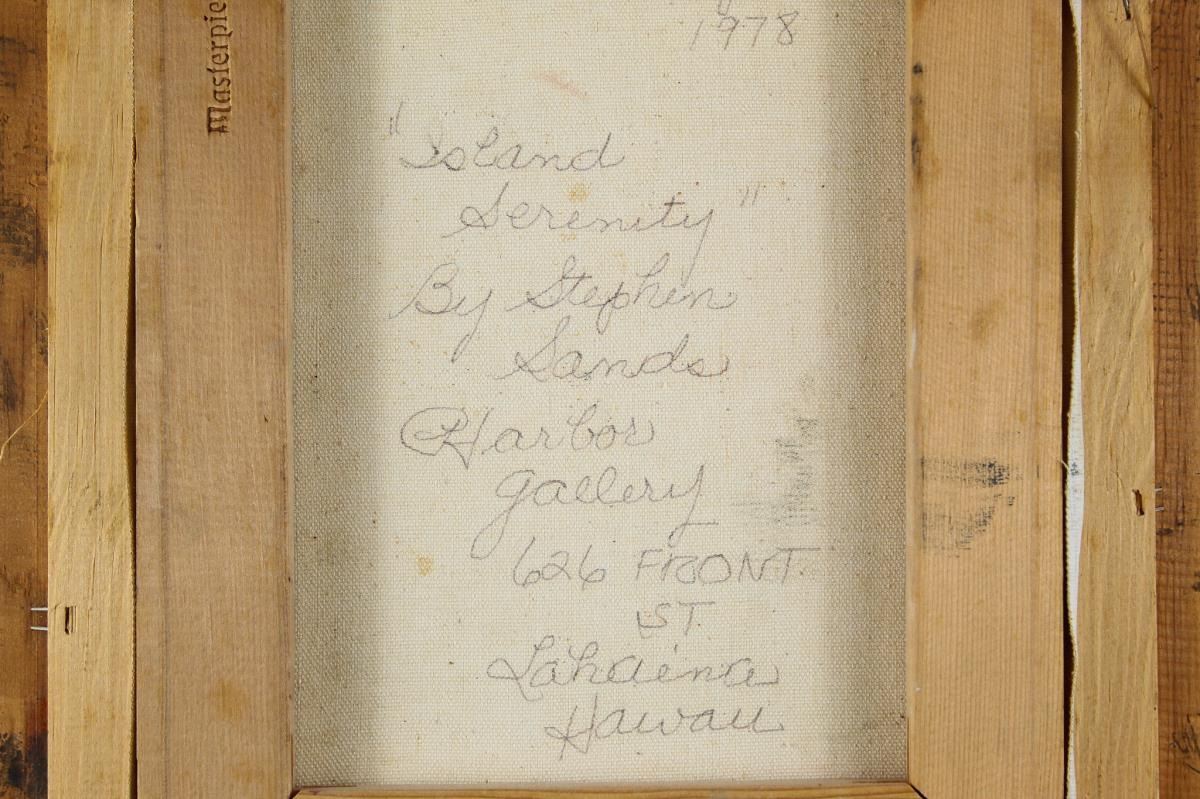 1978
"Island
Serenity"
By Stephen
Sands
Harbor
Gallery
626 FRONT.
ST.
Lahaina
Hawaii
Masterpie